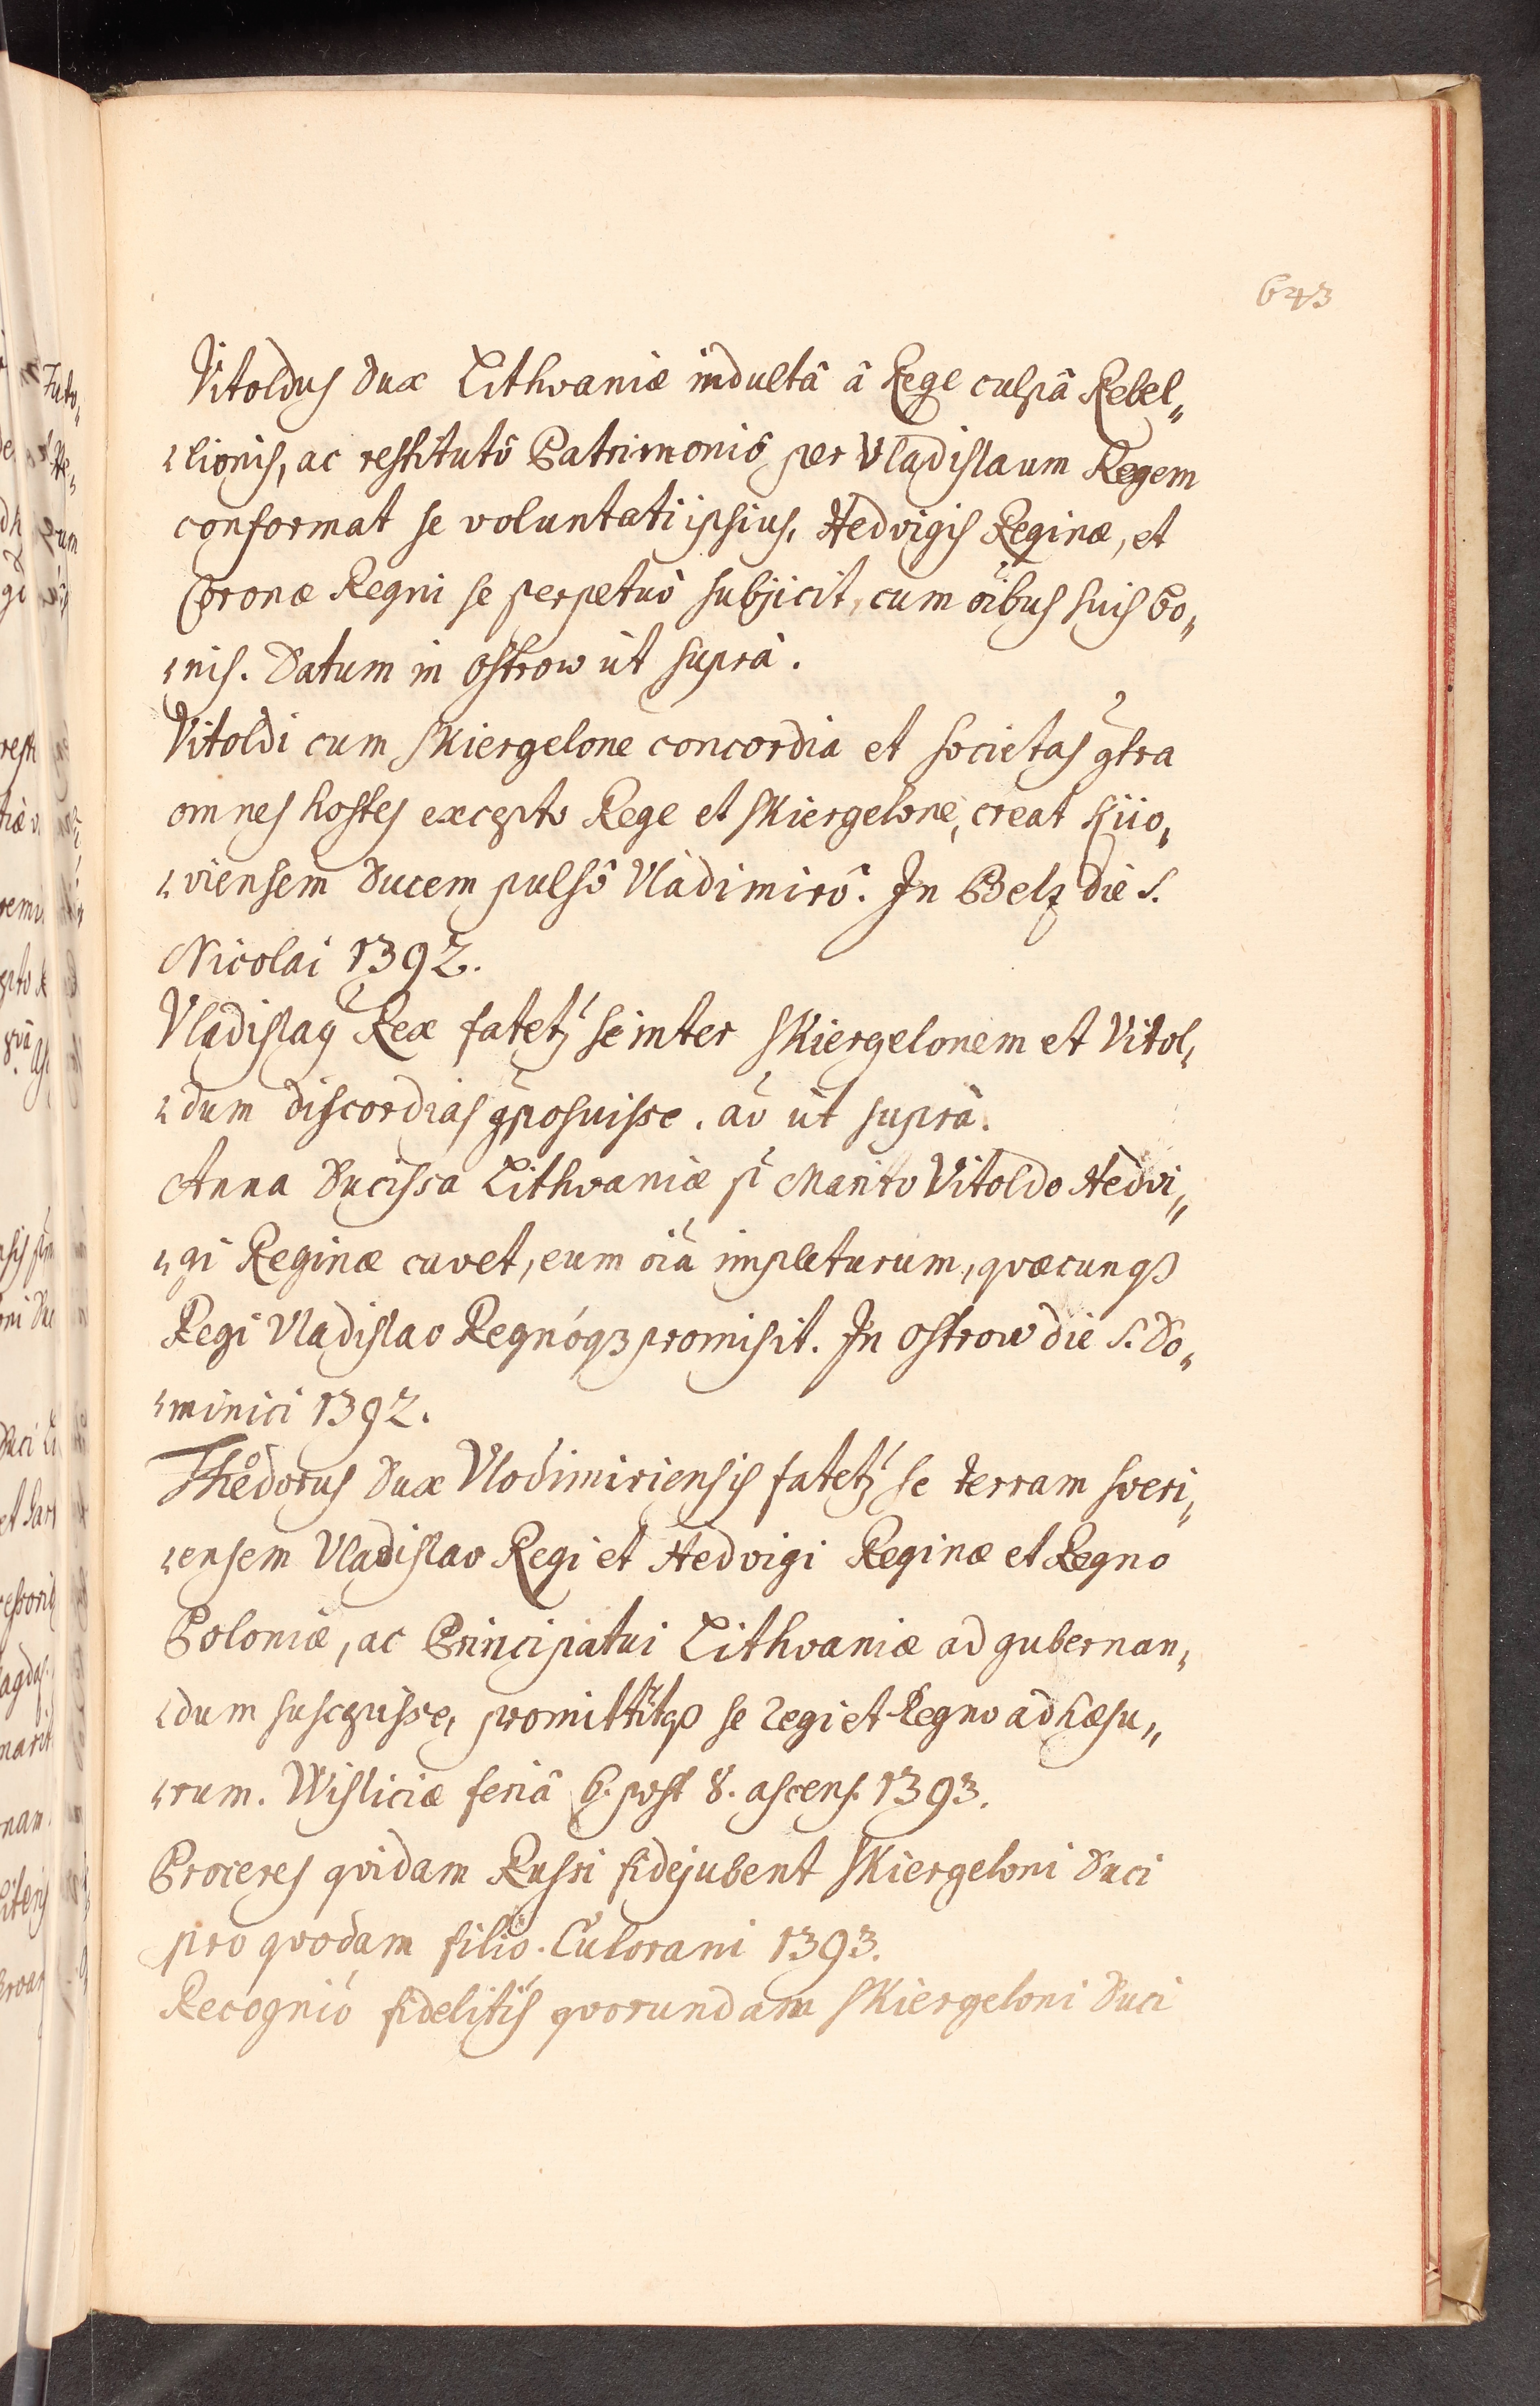 643
Vitoldus Dux Lithvaniæ indultâ â Rege culpâ Rebel„
„lionis, ac restitutô Patrimoniô per Vladislaum Regem
conformat se voluntati ipsius, Hedvigis Reginæ, et
Coronæ Regni se perpetuò subjicit, cum oibus suis bo„
„nis. Datum in Ostrow ùt suprà.
Vitoldi cum Skiergelone concordia et societas gtra
omnes hostes excepto Rege et Skiergelone, creat Kiio„
„viensem Ducem pulsô Vladimirô. In Belz die S.
Nicolai 1392.
Vladislaq Rex fatetz se inter Skiergelonem et Vitol„
„dum discordias gposuisse. aō ùt suprà.
Anna Ducissa Lithvaniæ p Marito Vitoldo Hedvi„
„gi Reginæ cavet, eum oia impleturum, qvæcunqꝫ
Regi Vladislao Regnóqꝫ promisit. In Ostrow die S. Do„
„minici 1392.
Theodorus Dux Vlodimiriensis fatetz se terram sveri„
„ensem Vladislao Regi et Hedvigi Reginæ et Regno
Poloniæ, ac Principatui Lithvaniæ ad gubernan„
„dum suscepisse, promittitqꝫ se regi et Regno adhæsu„
„rum. Wisliciæ feriâ 6. post 8. ascens. 1393.
Proceres qvidam Russi fidejubent Skiergeloni Duci
pro qvodam filio. Culorani 1393.
Recognio fidelitis qvorundam Skiergeloni Duci